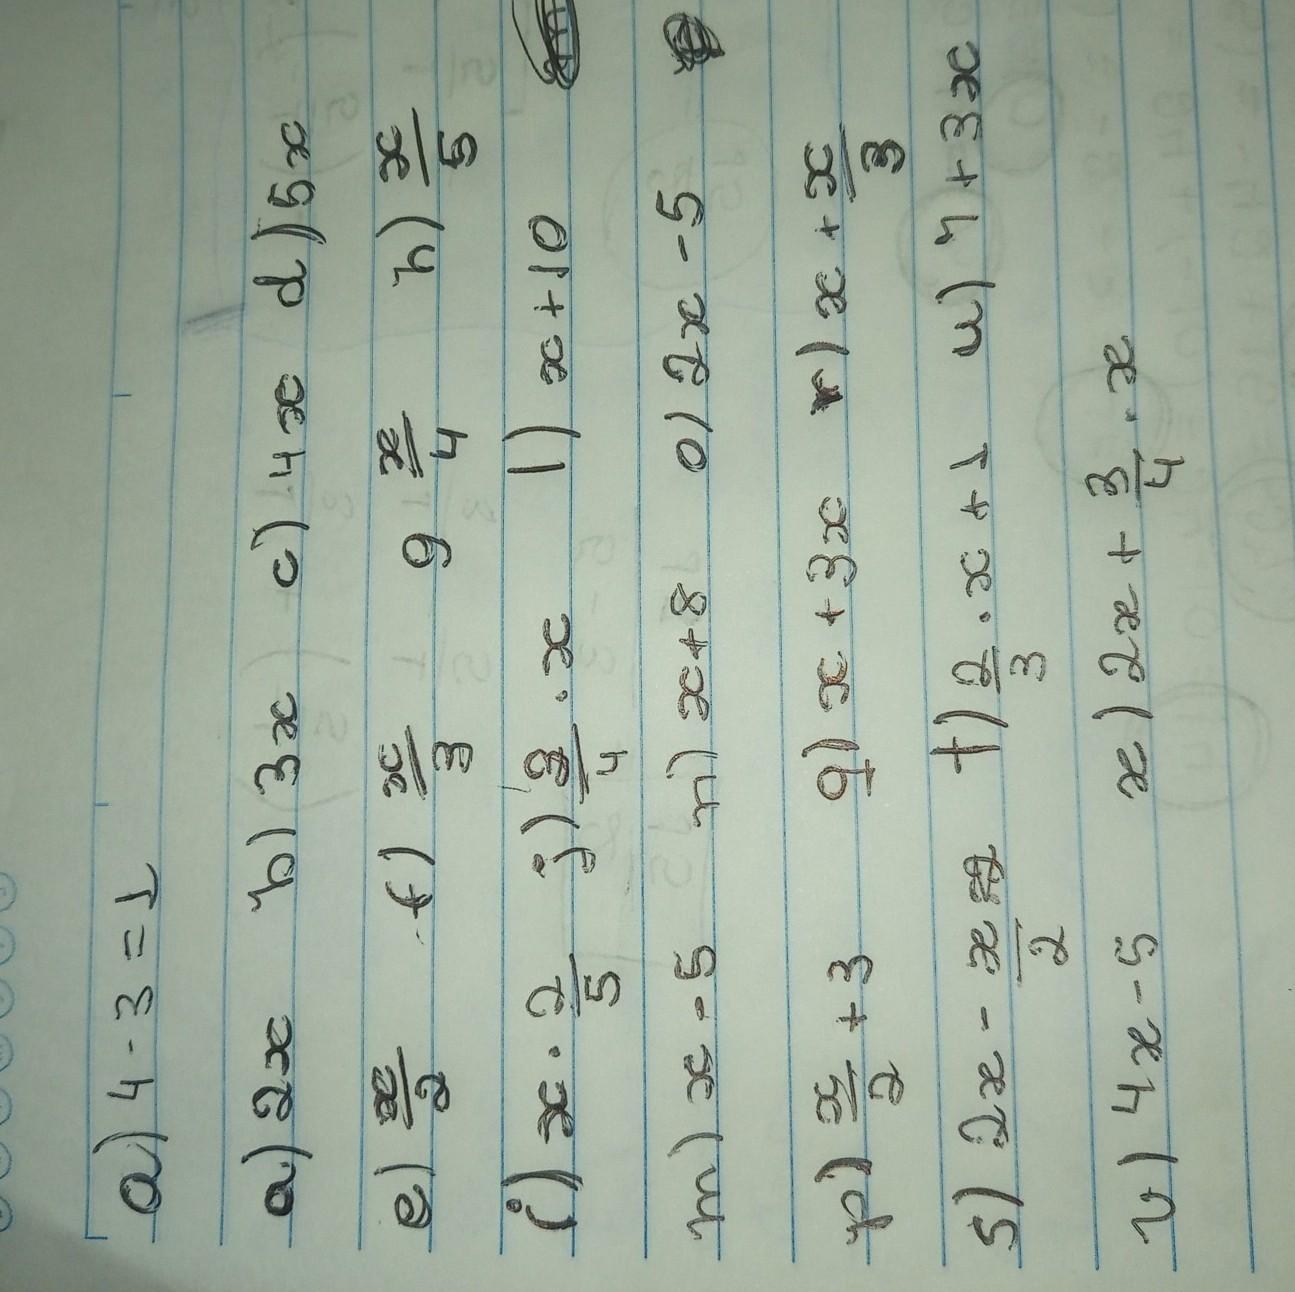 a) 4 - 3 = 1
a) 2x b) 3x c) 4x d) 5x
e) x/2 f) x/3 g x/4 h) x/5
i) x · 2/5 j) 3/4 · x l) x + 10
m) x - 5 n) x + 8 o) 2x - 5
p) x/2 + 3 q) x + 3x r) x + x/3
s) 2x - x/2 t) 2/3 · x + 1 u) 4 + 3x
v) 4x - 5 x) 2x + 3/4 · x